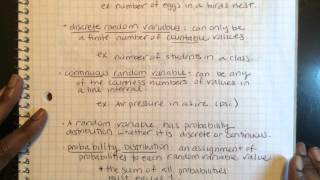 ex number of eggs in a birds nest.
• discrete random variables: can only be
a finite number of countable values
ex number of students in a class.
• continuous random variable: can be any
of the countless numbers of values
in a line interval
ex air pressure in a tire (psi)
• A random variable has probability
distribution whether it's discrete or continuous.
probability distribution: an assignment of
probabilities to each random variable value
* the sum of all probabilities
must equal 1